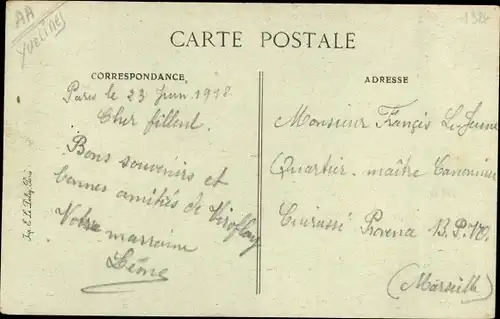 AA
YVELINES
CARTE POSTALE
CORRESPONDANCE
Paris le 23 Juin 1918.
Cher filleul.
Bons souvenirs et
bonnes amitiés de Viroflay
Votre marraine
ADRESSE
Monsieur Français Le Jeune
Quartier-maître Canonnier
Cuirassé Provence B.P.N°.
(Marseille)
Imp. E. Le Deley, Paris